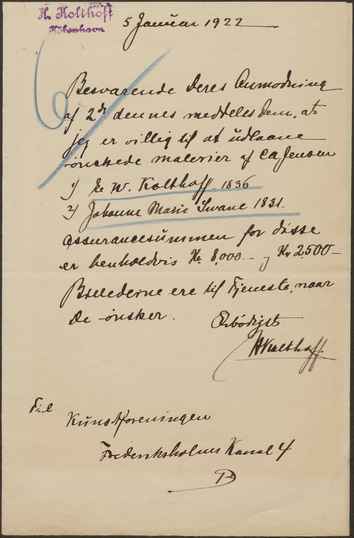 H. Holthoff
København
5 Januar 1922
Besvarende Deres Anmodning
af 2de dennes meddeles Dem, at
jeg er villig til at udlaane
ønskede malerier af CA Jensen
1/ E W. Holthoff 1836
2/ Johanne Marie Swane 1831.
Assurancesummen for disse
er henholdvis Kr. 8,000 – og Kr 2500 –
Billederne ere til Tjeneste, naar
De ønsker.
Ærbødigst
HHolthoff
Til
Kunstforeningen
Frederiksholms Kanal 4